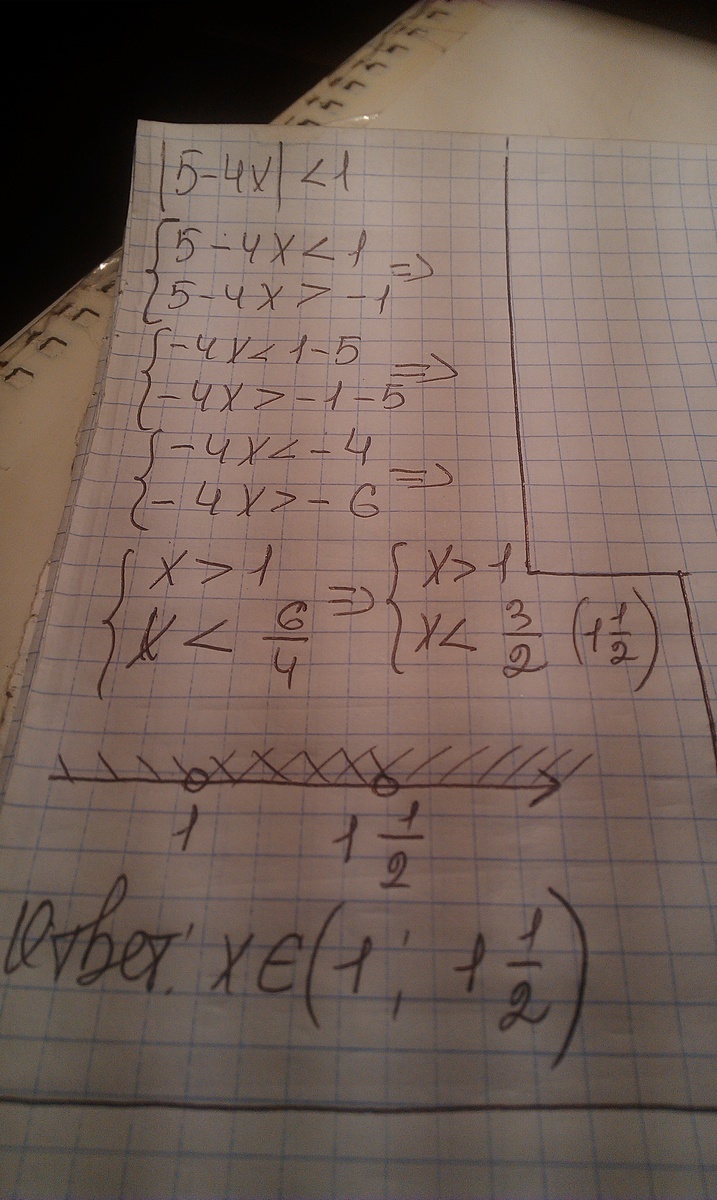 |5-4x| <1
{5-4x<1
{5-4x>-1 =>
{-4x<1-5
{-4x>-1-5 =>
{-4x<-4
{-4x>-6 =>
{x>1
{x<6/4 => {x>1
{x<3/2 (1 1/2)
1 1 1/2
Ответ: x∈(1; 1 1/2)